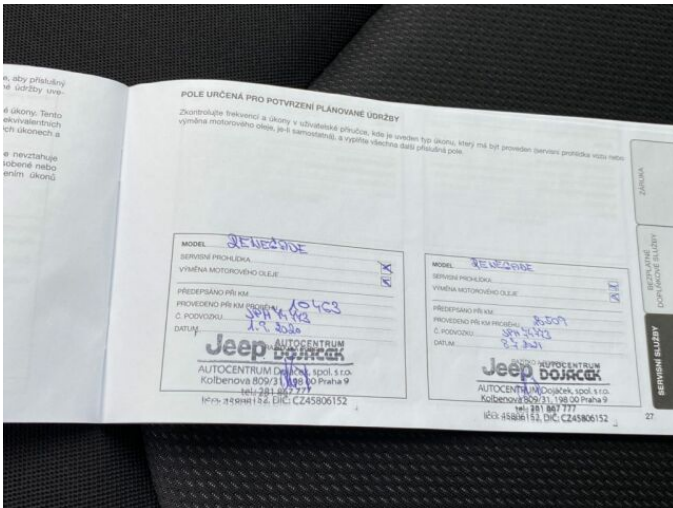 e, aby příslušný
né údržby uve-
é úkony. Tento
ekvivalentních
ch úkonech a
e nevztahuje
sobené nebo
ením úkonů
POLE URČENÁ PRO POTVRZENÍ PLÁNOVANÉ ÚDRŽBY
Zkontrolujte frekvenci a úkony v uživatelské příručce, kde je uveden typ úkonu, který má být proveden (servisní prohlídka vozu nebo
výměna motorového oleje, je-li samostatná), a vyplňte všechna další příslušná pole.
MODEL RENEGADE
SERVISNÍ PROHLÍDKA X
VÝMĚNA MOTOROVÉHO OLEJE X
PŘEDEPSÁNO PŘI KM
PROVEDENO PŘI KM PRŮBĚHU 10463
Č. PODVOZKU
DATUM 1.7.2020
Jeep AUTOCENTRUM
DOJÁČEK
AUTOCENTRUM Dojáček, spol. s r.o.
Kolbenova 809/31, 198 00 Praha 9
tel.: 281 867 777
IČO: 45806152, DIČ: CZ45806152
MODEL RENEGADE
SERVISNÍ PROHLÍDKA X
VÝMĚNA MOTOROVÉHO OLEJE X
PŘEDEPSÁNO PŘI KM
PROVEDENO PŘI KM PRŮBĚHU
Č. PODVOZKU
DATUM
Jeep AUTOCENTRUM
DOJÁČEK
AUTOCENTRUM Dojáček, spol. s r.o.
Kolbenova 809/31, 198 00 Praha 9
tel.: 281 867 777
IČO: 45806152, DIČ: CZ45806152
27
ZÁRUKA
BEZPLATNÉ
DOPLŇKOVÉ SLUŽBY
SERVISNÍ SLUŽBY